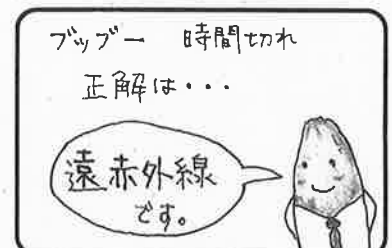 ブッブー 時間切れ
正解は・・・
遠赤外線
です。